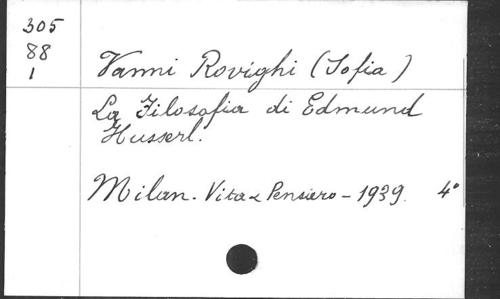 305
88
1
Vanni Rovighi (Sofia)
La Filosofia di Edmund
Husserl.
Milan. Vita e Pensiero - 1939. 4°